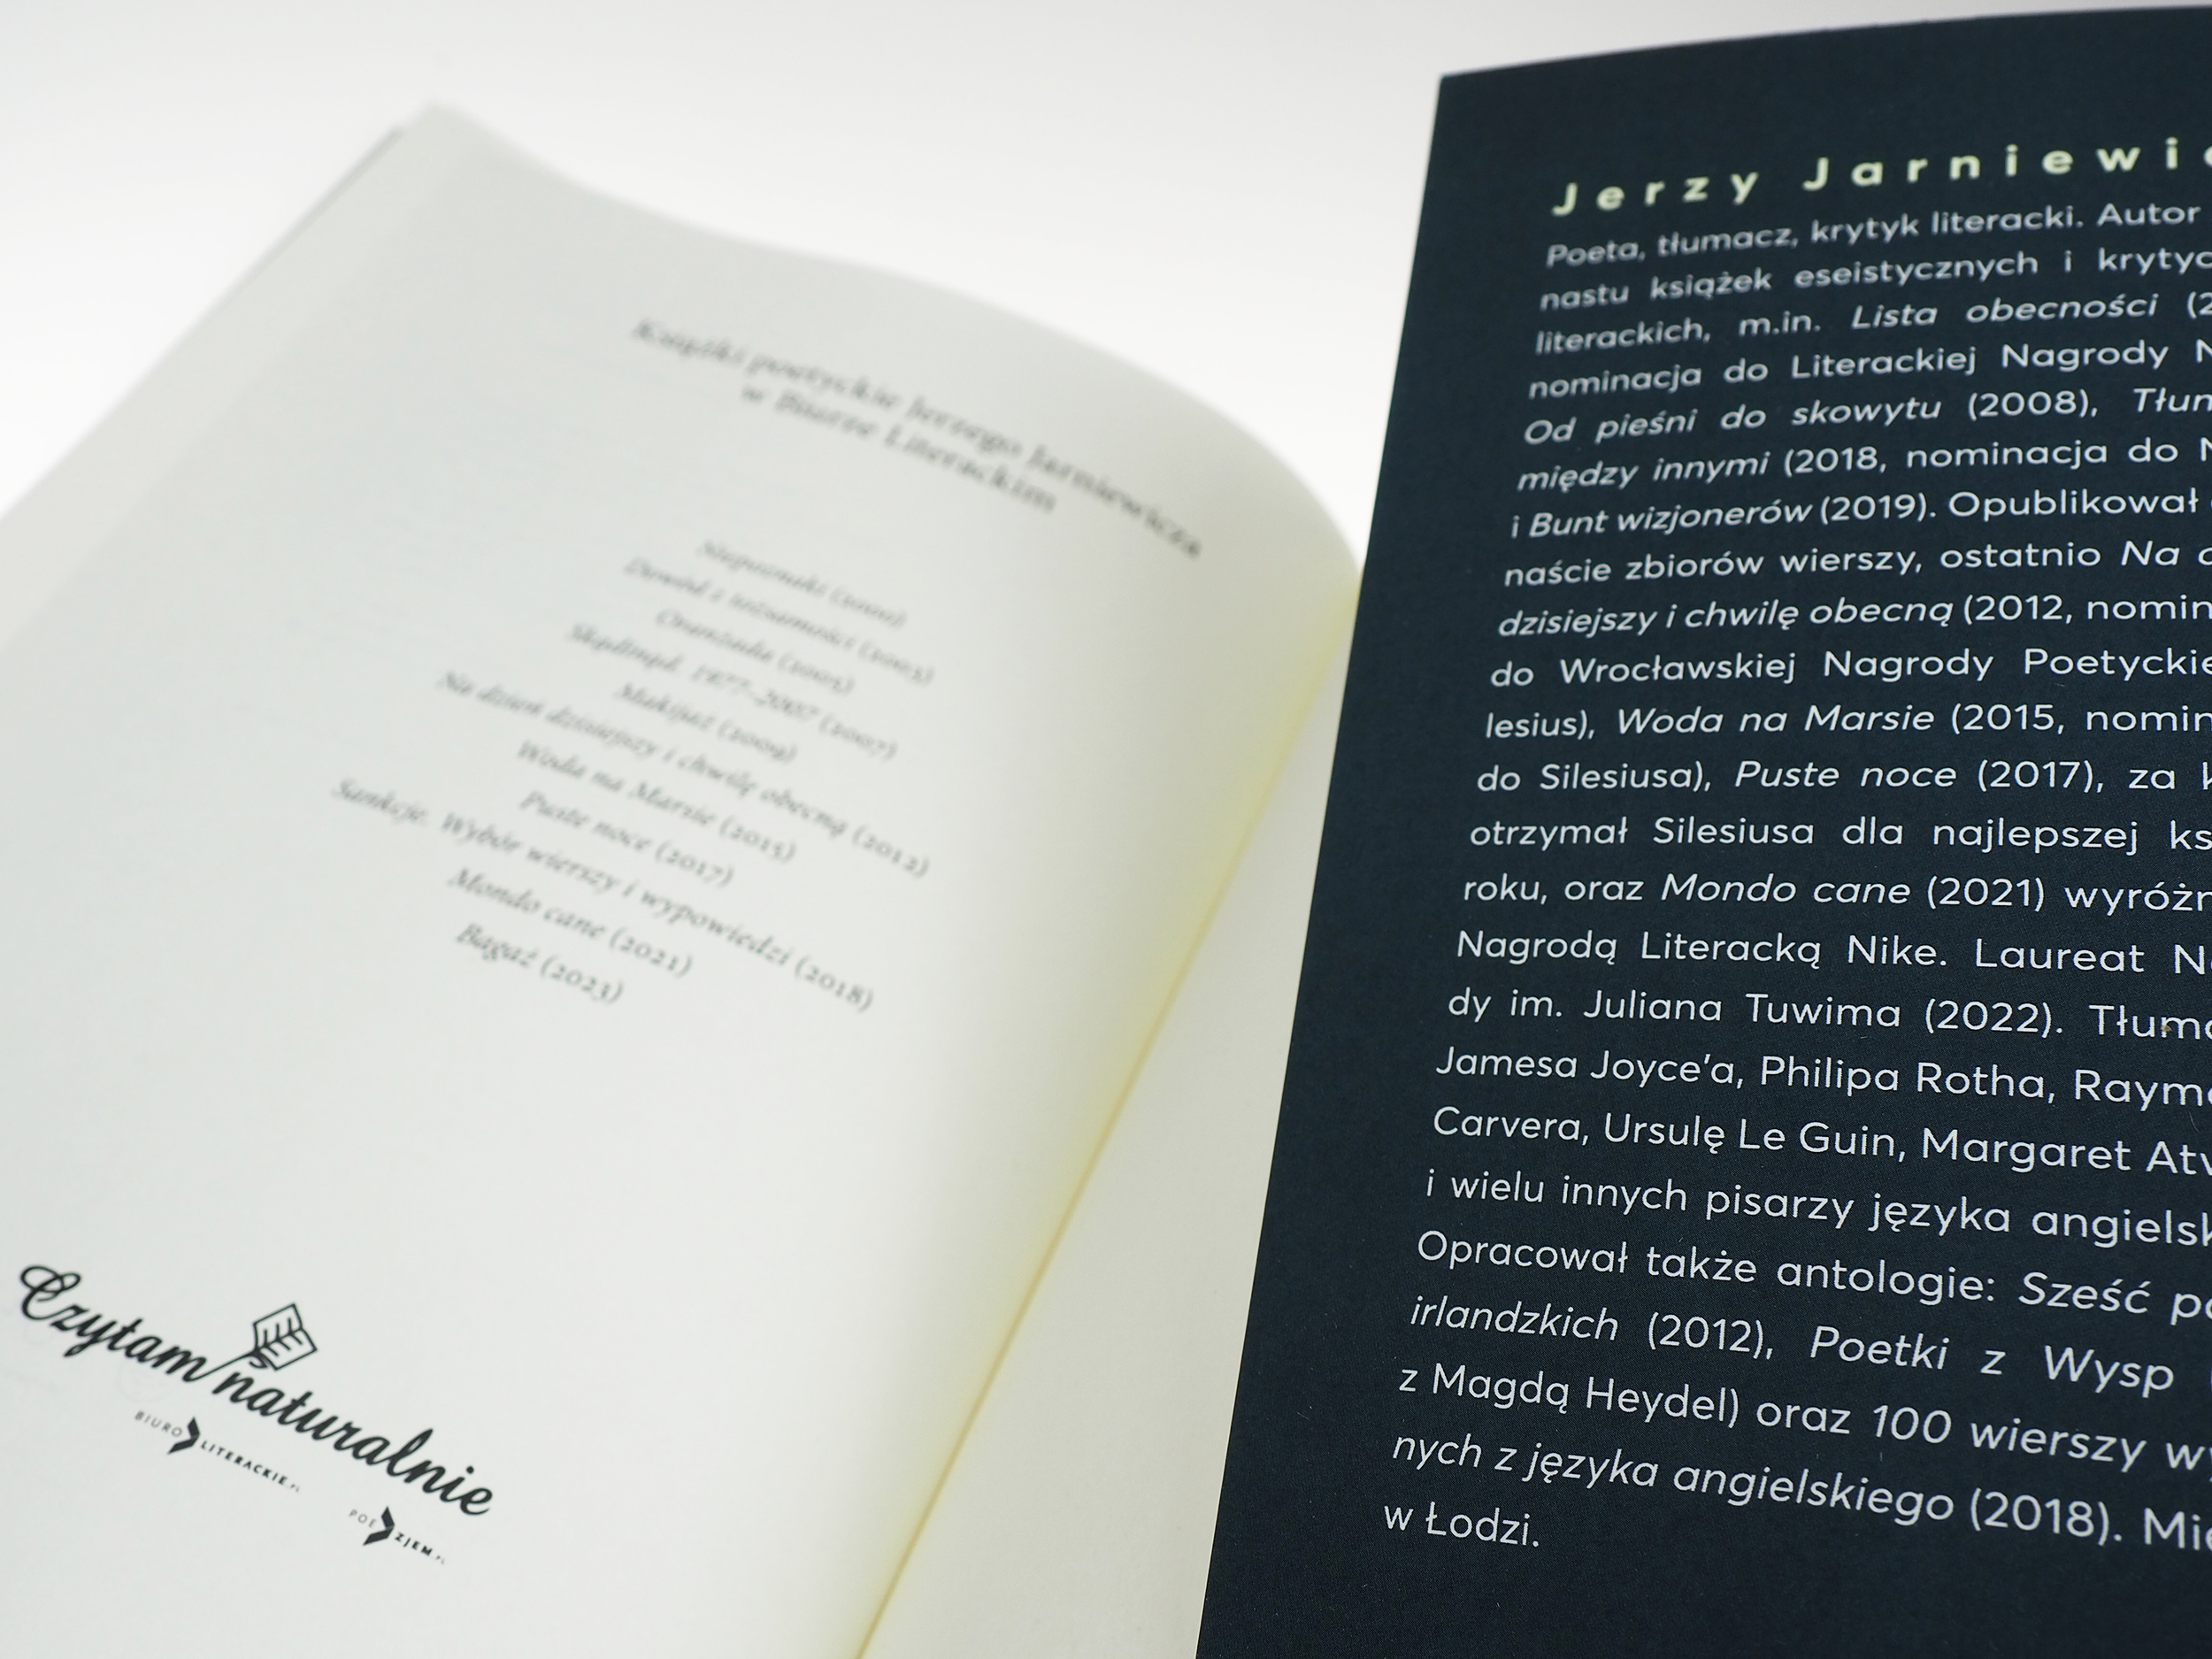 Książki poetyckie Jerzego Jarniewicza
w Biurze Literackim
Niepoznaki (2000)
Dowód z tożsamości (2003)
Oranżada (2005)
Skądinąd. 1977–2007 (2007)
Makijaż (2009)
Na dzień dzisiejszy i chwilę obecną (2012)
Woda na Marsie (2015)
Puste noce (2017)
Sankcje. Wybór wierszy i wypowiedzi (2018)
Mondo cane (2021)
Bagaż (2023)
Czytam naturalnie
BIURO LITERACKIE.PL
POEZJEM.PL
Jerzy Jarniewi
Poeta, tłumacz, krytyk literacki. Autor
nastu książek eseistycznych i krytyc
literackich, m.in. Lista obecności (2
nominacja do Literackiej Nagrody N
Od pieśni do skowytu (2008), Tłum
między innymi (2018, nominacja do N
i Bunt wizjonerów (2019). Opublikował
naście zbiorów wierszy, ostatnio Na d
dzisiejszy i chwilę obecną (2012, nomin
do Wrocławskiej Nagrody Poetyckie
lesius), Woda na Marsie (2015, nomin
do Silesiusa), Puste noce (2017), za k
otrzymał Silesiusa dla najlepszej ks
roku, oraz Mondo cane (2021) wyróżn
Nagrodą Literacką Nike. Laureat Na
dy im. Juliana Tuwima (2022). Tłuma
Jamesa Joyce'a, Philipa Rotha, Raymo
Carvera, Ursulę Le Guin, Margaret Atw
i wielu innych pisarzy języka angielsk
Opracował także antologie: Sześć po
irlandzkich (2012), Poetki z Wysp (
z Magdą Heydel) oraz 100 wierszy wy
nych z języka angielskiego (2018). Mie
w Łodzi.